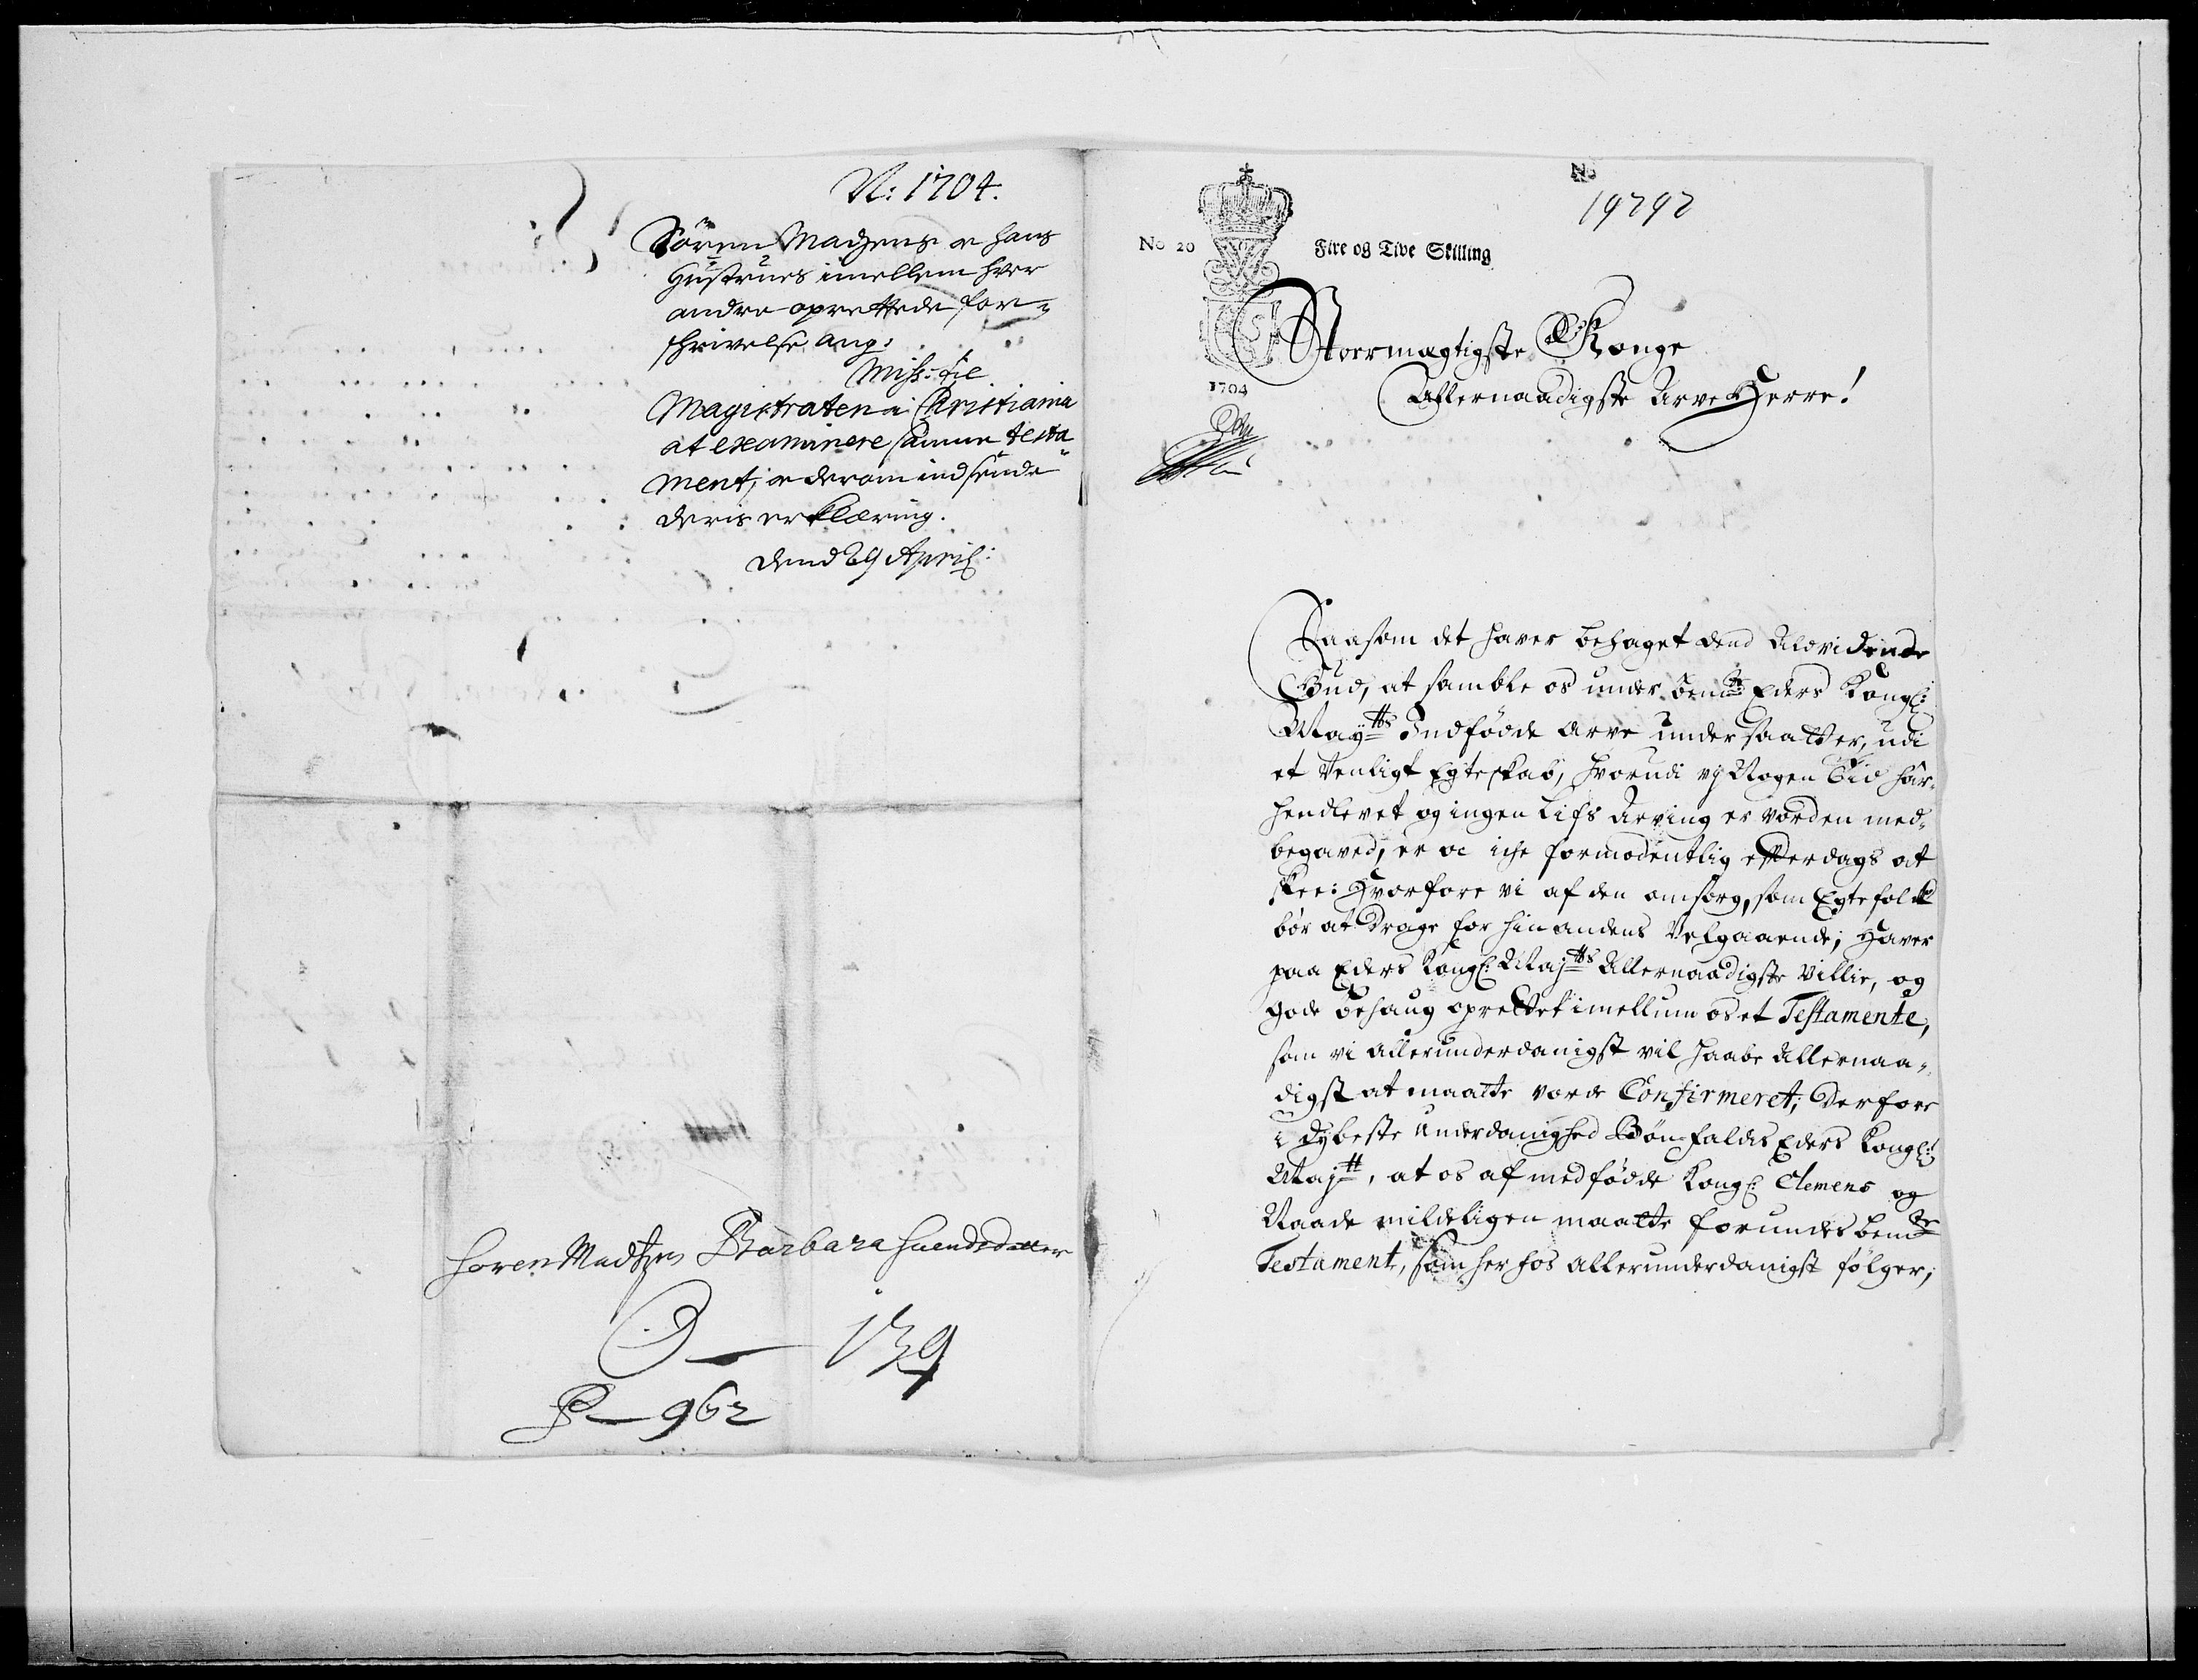 N: 1704.
Sören Madzens oc hans
Hustrues imellem hver
andre oprettede for-
schrivelse ang:
Miss: til
Magistraten i Christiania
at examinere samme testa
ment, oc derom indsende
deris erklæring.
Dend 29 April:
Soren Madtzen Barbara Suendsdatter
139
P 962
No
19292
No 20
Fire og Tive Skilling
1704
Stoermægtigste Konge
Allernaadigste Arve Herre!
Saasom det haver behaget dend Alvidende
Gud, at samble os under bente Eders Kongl:
Mayttes Indfödde Arve undersaatter, udi
et Venligt Egteskab, hvorudi vj Nogen Tid har
hendlevet og ingen Lifs Arving er vorden med
begaved, er oc iche formodentlig efterdags at
skee: Hvorfore vi af den omsorg, som Egtefolck
bör at drage for hinandens Velgaaende, haver
paa Eders Kongl: Majtts Allernaadigste Villie, og
gode behaug oprettet imellum os et Testamente,
som vi allerunderdanigst vil haabe Allernaa-
digst at maatte vorde Confirmeret; Derfore
i dybeste underdanighed Bönfaldes Eders Kongl:
Majtt, at os af medfödde Kongl: Clemens og
Naade mildeligen maatte forundes bemte
Testament, som her hos allerunderdanigst fölger;